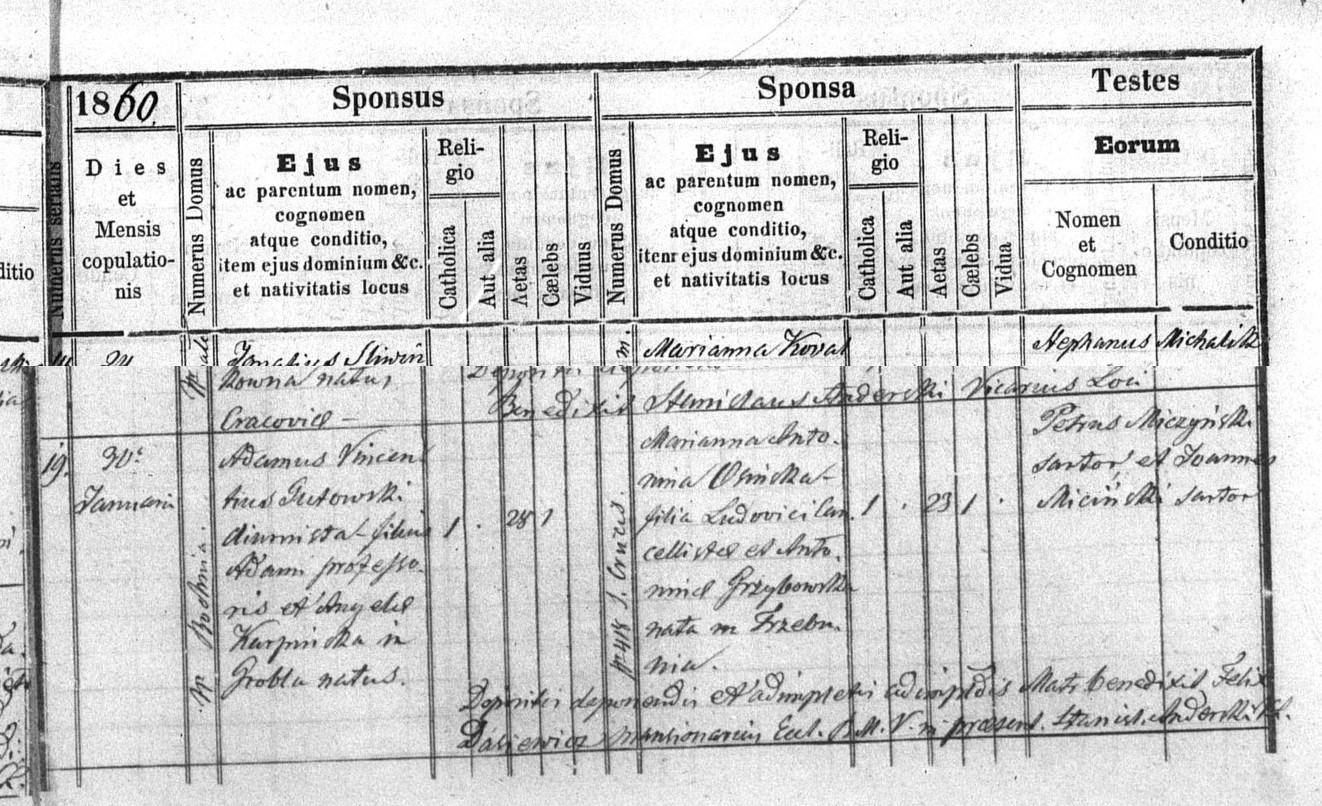 1860.
Sponsus
Sponsa
Testes
ditio
Numerus serialis
Dies
et
Mensis
copulatio-
nis
Numerus Domus
Ejus
ac parentum nomen,
cognomen
atque conditio,
item ejus dominium &c.
et nativitatis locus
Reli-
gio
Catholica
Aut alia
Aetas
Cælebs
Viduus
Numerus Domus
Ejus
ac parentum nomen,
cognomen
atque conditio,
item ejus dominium &c.
et nativitatis locus
Reli-
gio
Catholica
Aut alia
Aetas
Cælebs
Vidua
Eorum
Nomen
et
Cognomen
Conditio
Ignatius Sliwin
Marianna Koval
Stephanus Michalik
kowna natus
Cracoviæ –
Benedixit Stanislaus Anderski Vicarius Loci
19.
30
Januarii
Bochnia
Adamus Vincen
tius Gutowski
diurnista filius
Adami professo-
ris et Angelæ
Karpinska in
Grobla natus.
1 . 28 1
418 S. Crucis.
Marianna Anto-
nina Osinska
filia Ludovici Can
cellistæ et Anto-
niæ Grzybowska
nata in Trzebi-
nia.
1 . 23 1 .
Petrus Miczyński
sartor et Joannes
Miciński sartor
Depositis deponendis et adimpletis adimplendis Matr. benedixit Felix
Dasiewicz mansionarius Eccl. B.M.V. in præsent. Stanisl. Anderski